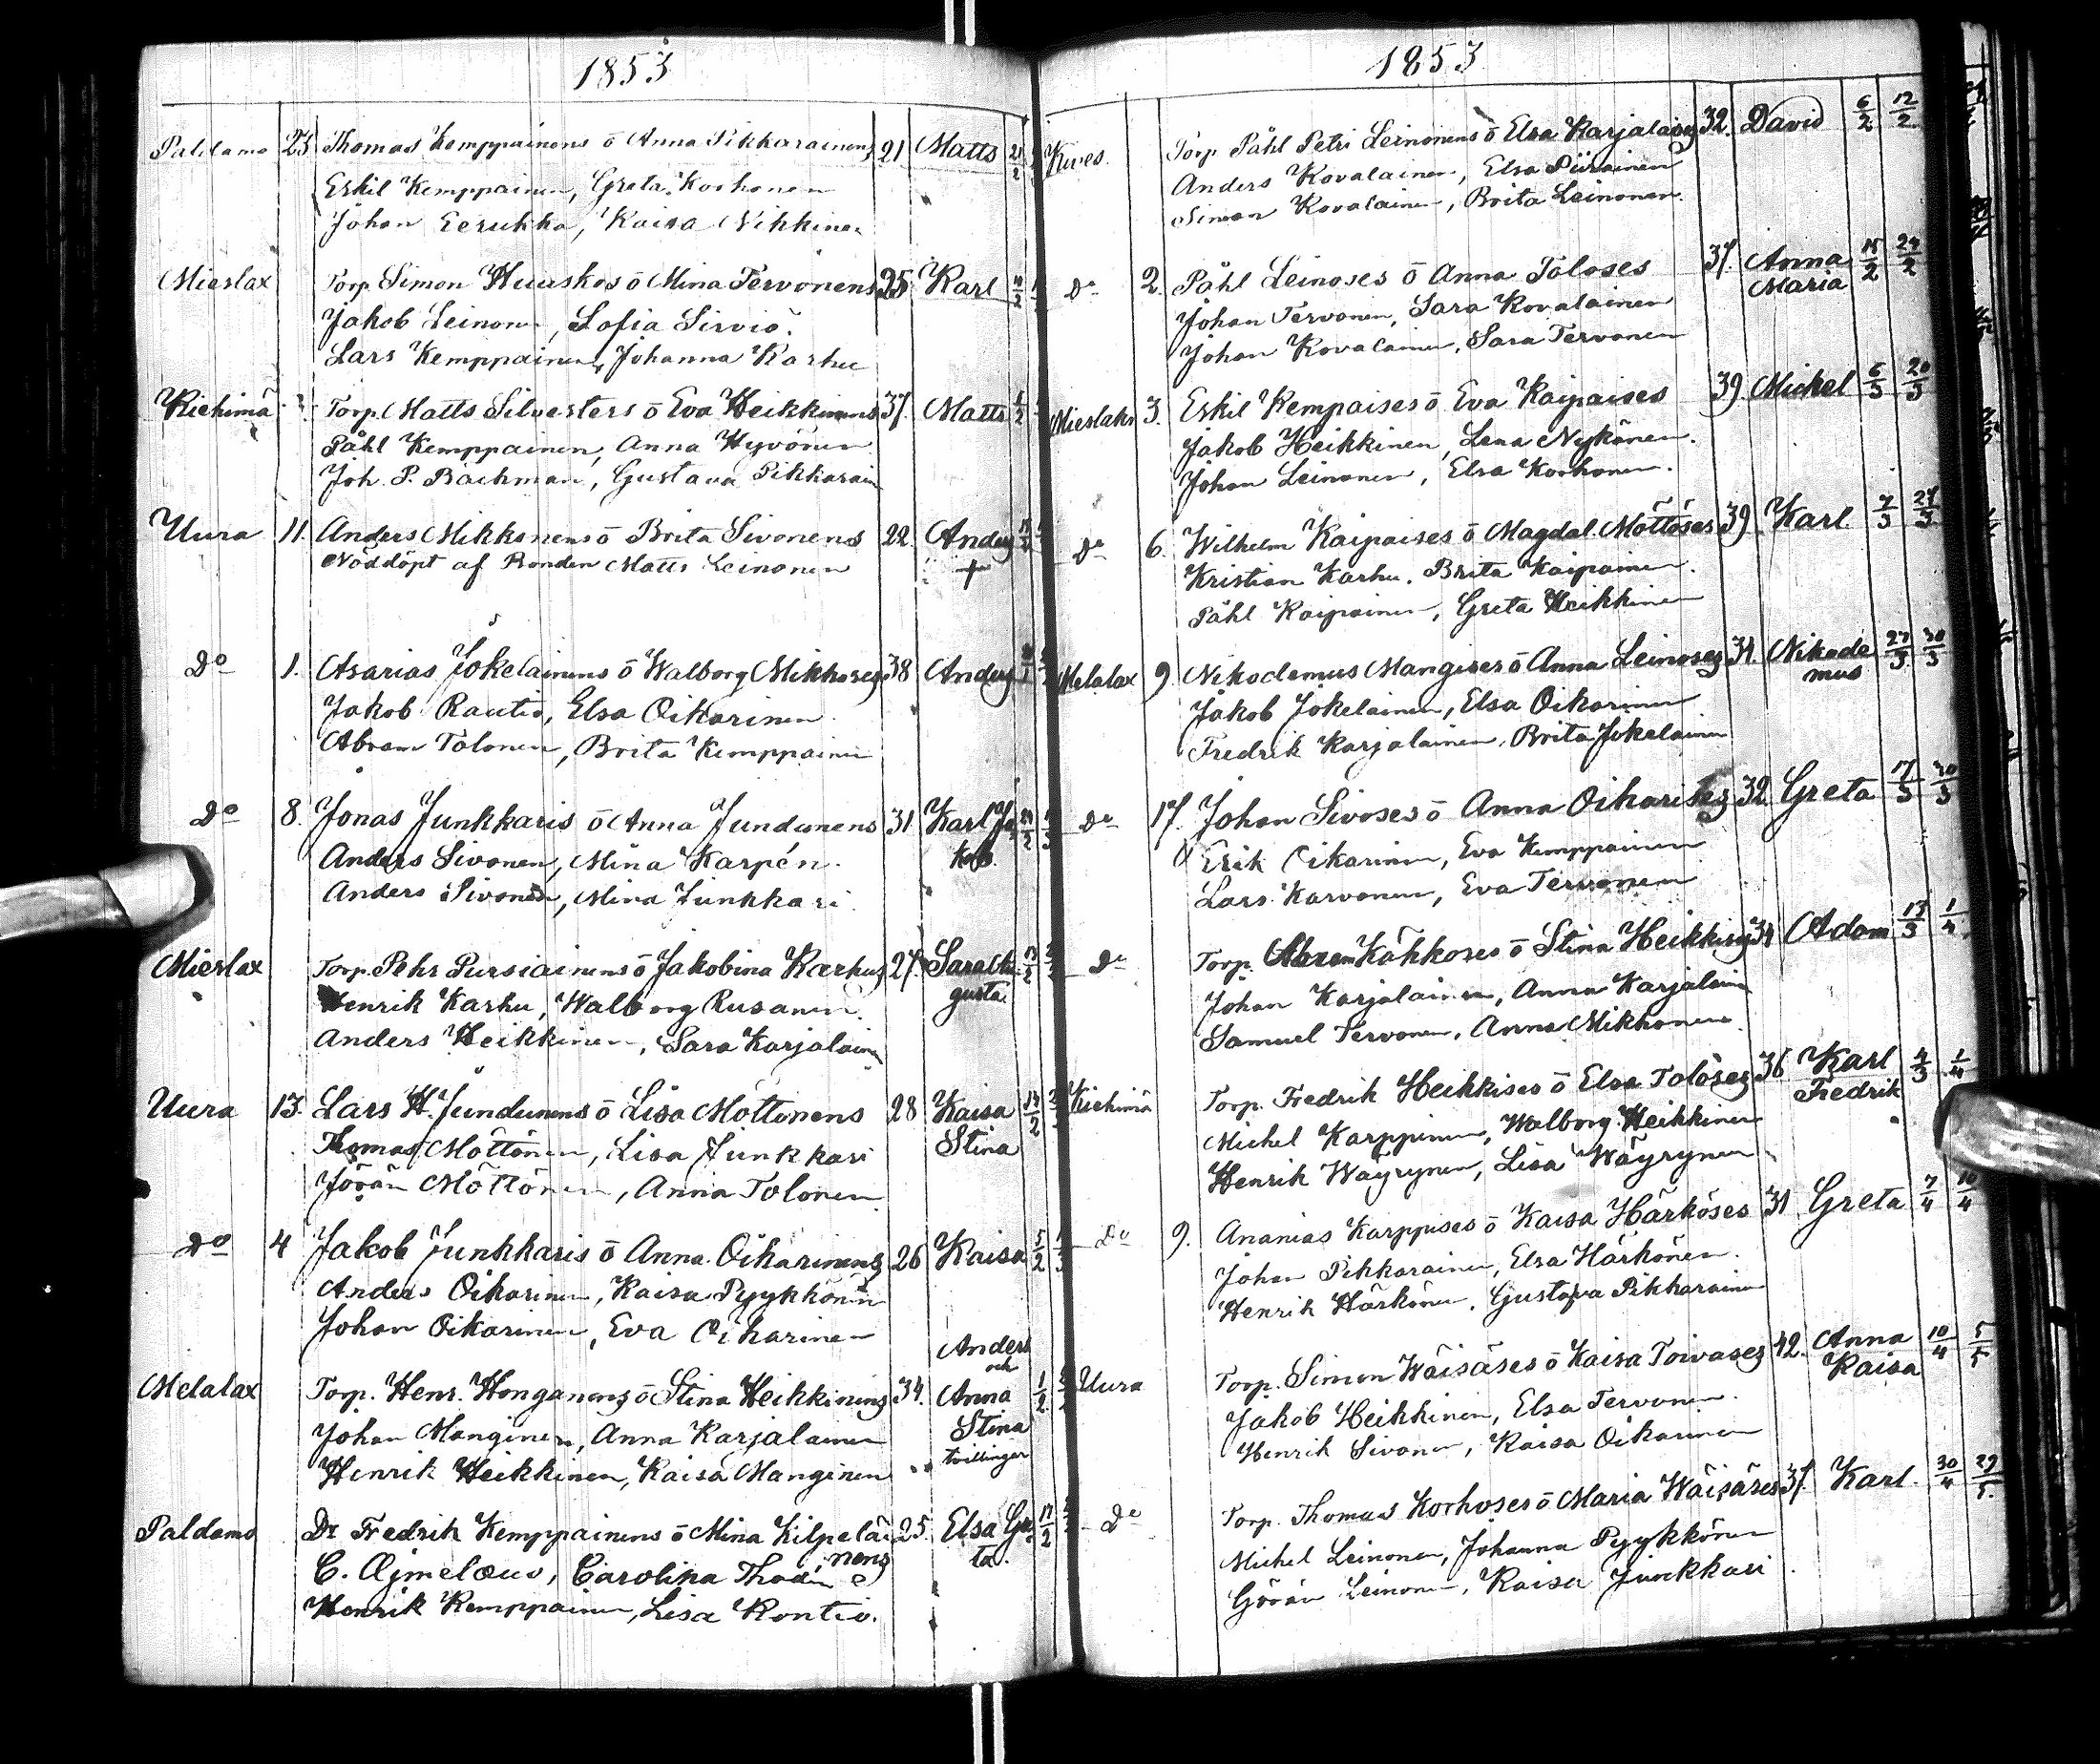 1853
Paldamo 23 Thomas Kemppainens ō Anna Pikkarainens 21 Matts
Eskil Kemppainen, Greta Korhonen
Johan Eerukka, Kaisa Nikkinen
Mieslax Torp. Simon Huuskos ō Mina Tervonens 25 Karl
Jakob Leinonen, Sofia Sirviö.
Lars Kemppainen, Johanna Karhu
Kiehimä Torp. Matts Silvesters ō Eva Heikkinens 37. Matts
Påhl Kemppainen, Anna Hyvönen
Joh. P. Bäckman, Gustava Pikkarain
Uura 11. Anders Mikkonens ō Brita Sivonens 22. Anders
Nöddöpt af Bonden Matts Leinonen +
Do 1. Asarias Jokelainens ō Walborg Mikkoses 38 Anders
Jakob Rautio, Elsa Oikarinen
Abram Tolonen, Brita Kemppainen
Do 8. Jonas Junkkaris ō Anna Jundunens 31. Karl Ja
Anders Sivonen, Mina Karpén. kob.
Anders Sivonen, Mina Junkkari
Mieslax Torp. Pehr Pursiainens ō Jakobina Karhus 27. Sara Au 13/2
Henrik Karhu, Walborg Rusanen. gusta
Anders Heikkinen, Sara Karjalainen
Uura 13. Lars H. Jundunens ō Lisa Möttönens 28 Kaisa 14/2
Thomas Möttönen, Lisa Junkkari Stina
Jöran Möttönen, Anna Tolonen
Do 4 Jakob Junkkaris ō Anna Oikarinens 26 Kaisa 5/2
Anders Oikarinen, Kaisa Pyykkönen
Johan Oikarinen, Eva Oikarinen
Anders
och
Melalax Torp. Henr. Honganens ō Stina Heikkinens 34. Anna 1/2
Johan Manginen, Anna Karjalainen Stina
Henrik Heikkinen, Kaisa Manginen tvillingar
Paldamo Dr Fredrik Kemppainens ō Mina Kilpeläi 25. Elsa Gre 17/2
nens ta.
C. Ajmelæus, Carolina Thodén
Henrik Kemppainen, Lisa Kontio.
1853
Kives. Torp. Påhl Petri Leinonens ō Elsa Karjalaises 32. David 6/2 12/2
Anders Kovalainen, Elsa Piirainen
Simon Kovalainen, Brita Leinonen.
Do 2. Påhl Leinoses ō Anna Toloses 37. Anna 15/2 24/2
Maria
Johan Tervonen, Sara Kovalainen
Johan Kovalainen, Sara Tervonen
Mieslahti 3. Eskil Kempaises ō Eva Kaipaises 39. Mickel 6/3 20/3
Jakob Heikkinen, Lena Nykänen.
Johan Leinonen, Elsa Korhonen.
Do 6. Wilhelm Kaipaises ō Magdal. Möttöses 39. Karl. 7/3 27/3
Kristian Karhu, Brita Kaipainen.
Påhl Kaipainen, Greta Heikkinen
Melalax 9. Nikodemus Mangises ō Anna Leinoses 31. Nikode 27/3 30/3
mus
Jakob Jokelainen, Elsa Oikarinen
Fredrik Karjalainen, Brita Jokelainen
Do 17. Johan Sivoses ō Anna Oikarises 32. Greta 17/3 30/3
Erik Oikarinen, Eva Kemppainen
Lars Karvonen, Eva Tervonen
Do Torp. Abram Kähköses ō Stina Heikkises 34 Adam 13/3 1/4
Johan Karjalainen, Anna Karjalainen
Samuel Tervonen, Anna Mikkonen.
Kiehimä Torp. Fredrik Heikkises ō Elsa Toloses 36 Karl 4/3 1/4
Fredrik
Michel Karppinen, Walborg Heikkinen
Henrik Wäyrynen, Lisa Wäyrynen
Do 9. Ananias Karppises ō Kaisa Härköses 31. Greta 7/4 10/4
Johan Pikkarainen, Elsa Härkönen.
Henrik Härkönen, Gustava Pikkarainen
Uura Torp. Simon Wäisäses ō Kaisa Toivases 42. Anna 10/4 5/5
Kaisa
Jakob Heikkinen, Elsa Tervonen.
Henrik Sivonen, Kaisa Oikarinen
Do Torp. Thomas Korhoses ō Maria Wäisäses 37. Karl. 30/4 29/5.
Michel Leinonen, Johanna Pyykkönen
Göran Leinonen, Kaisa Junkkari